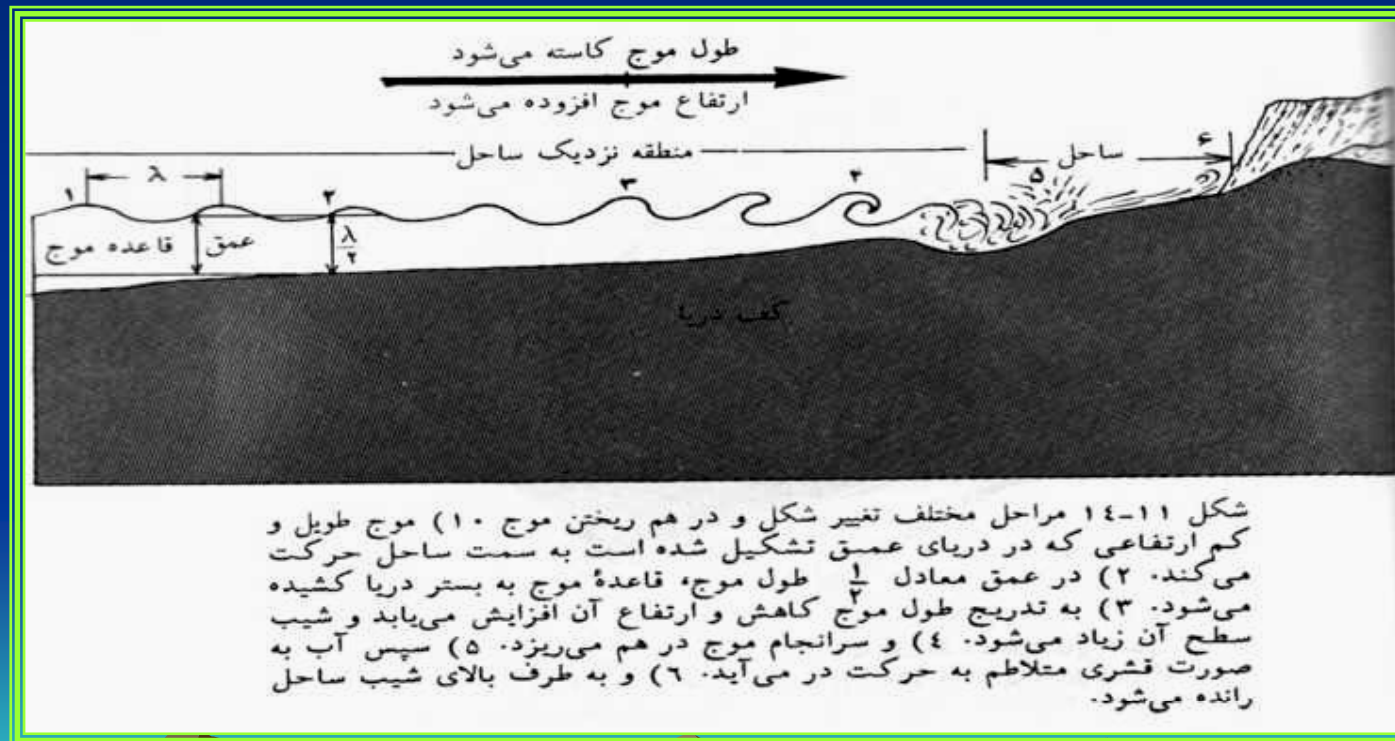 طول موج کاسته می‌شود
ارتفاع موج افزوده می‌شود
منطقه نزدیک ساحل
ساحل
۶
۱
λ
۲
۳
۴
۵
قاعده موج
عمق
λ/۲
کف دریا
شکل ۱۱-۱٤ مراحل مختلف تغییر شکل و در هم ریختن موج ۱۰) موج طویل و
کم ارتفاعی که در دریای عمیق تشکیل شده است به سمت ساحل حرکت
می‌کند. ۲) در عمق معادل ۱/۲ طول موج، قاعدهٔ موج به بستر دریا کشیده
می‌شود. ۳) به تدریج طول موج کاهش و ارتفاع آن افزایش می‌یابد و شیب
سطح آن زیاد می‌شود. ٤) و سرانجام موج در هم می‌ریزد. ۵) سپس آب به
صورت قشری متلاطم به حرکت در می‌آید. ٦) و به طرف بالای شیب ساحل
رانده می‌شود.